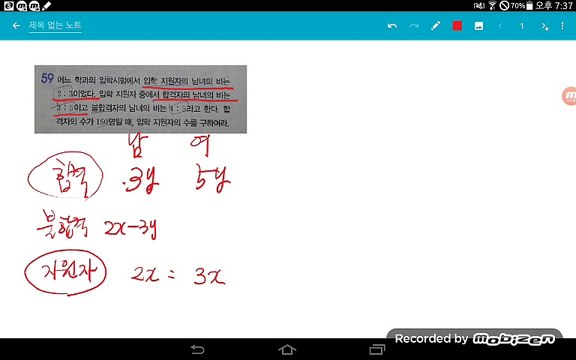 70% 오후 7:37
← 제목 없는 노트
1
59 어느 학과의 입학시험에서 입학 지원자의 남녀의 비는
2 : 3이었다. 입학 지원자 중에서 합격자의 남녀의 비는
3 : 5이고 불합격자의 남녀의 비는 4 : 5라고 한다. 합
격자의 수가 160명일 때, 입학 지원자의 수를 구하여라.
남 여
합격 3y 5y
불합격 2x-3y
지원자 2x : 3x
Recorded by mobizen